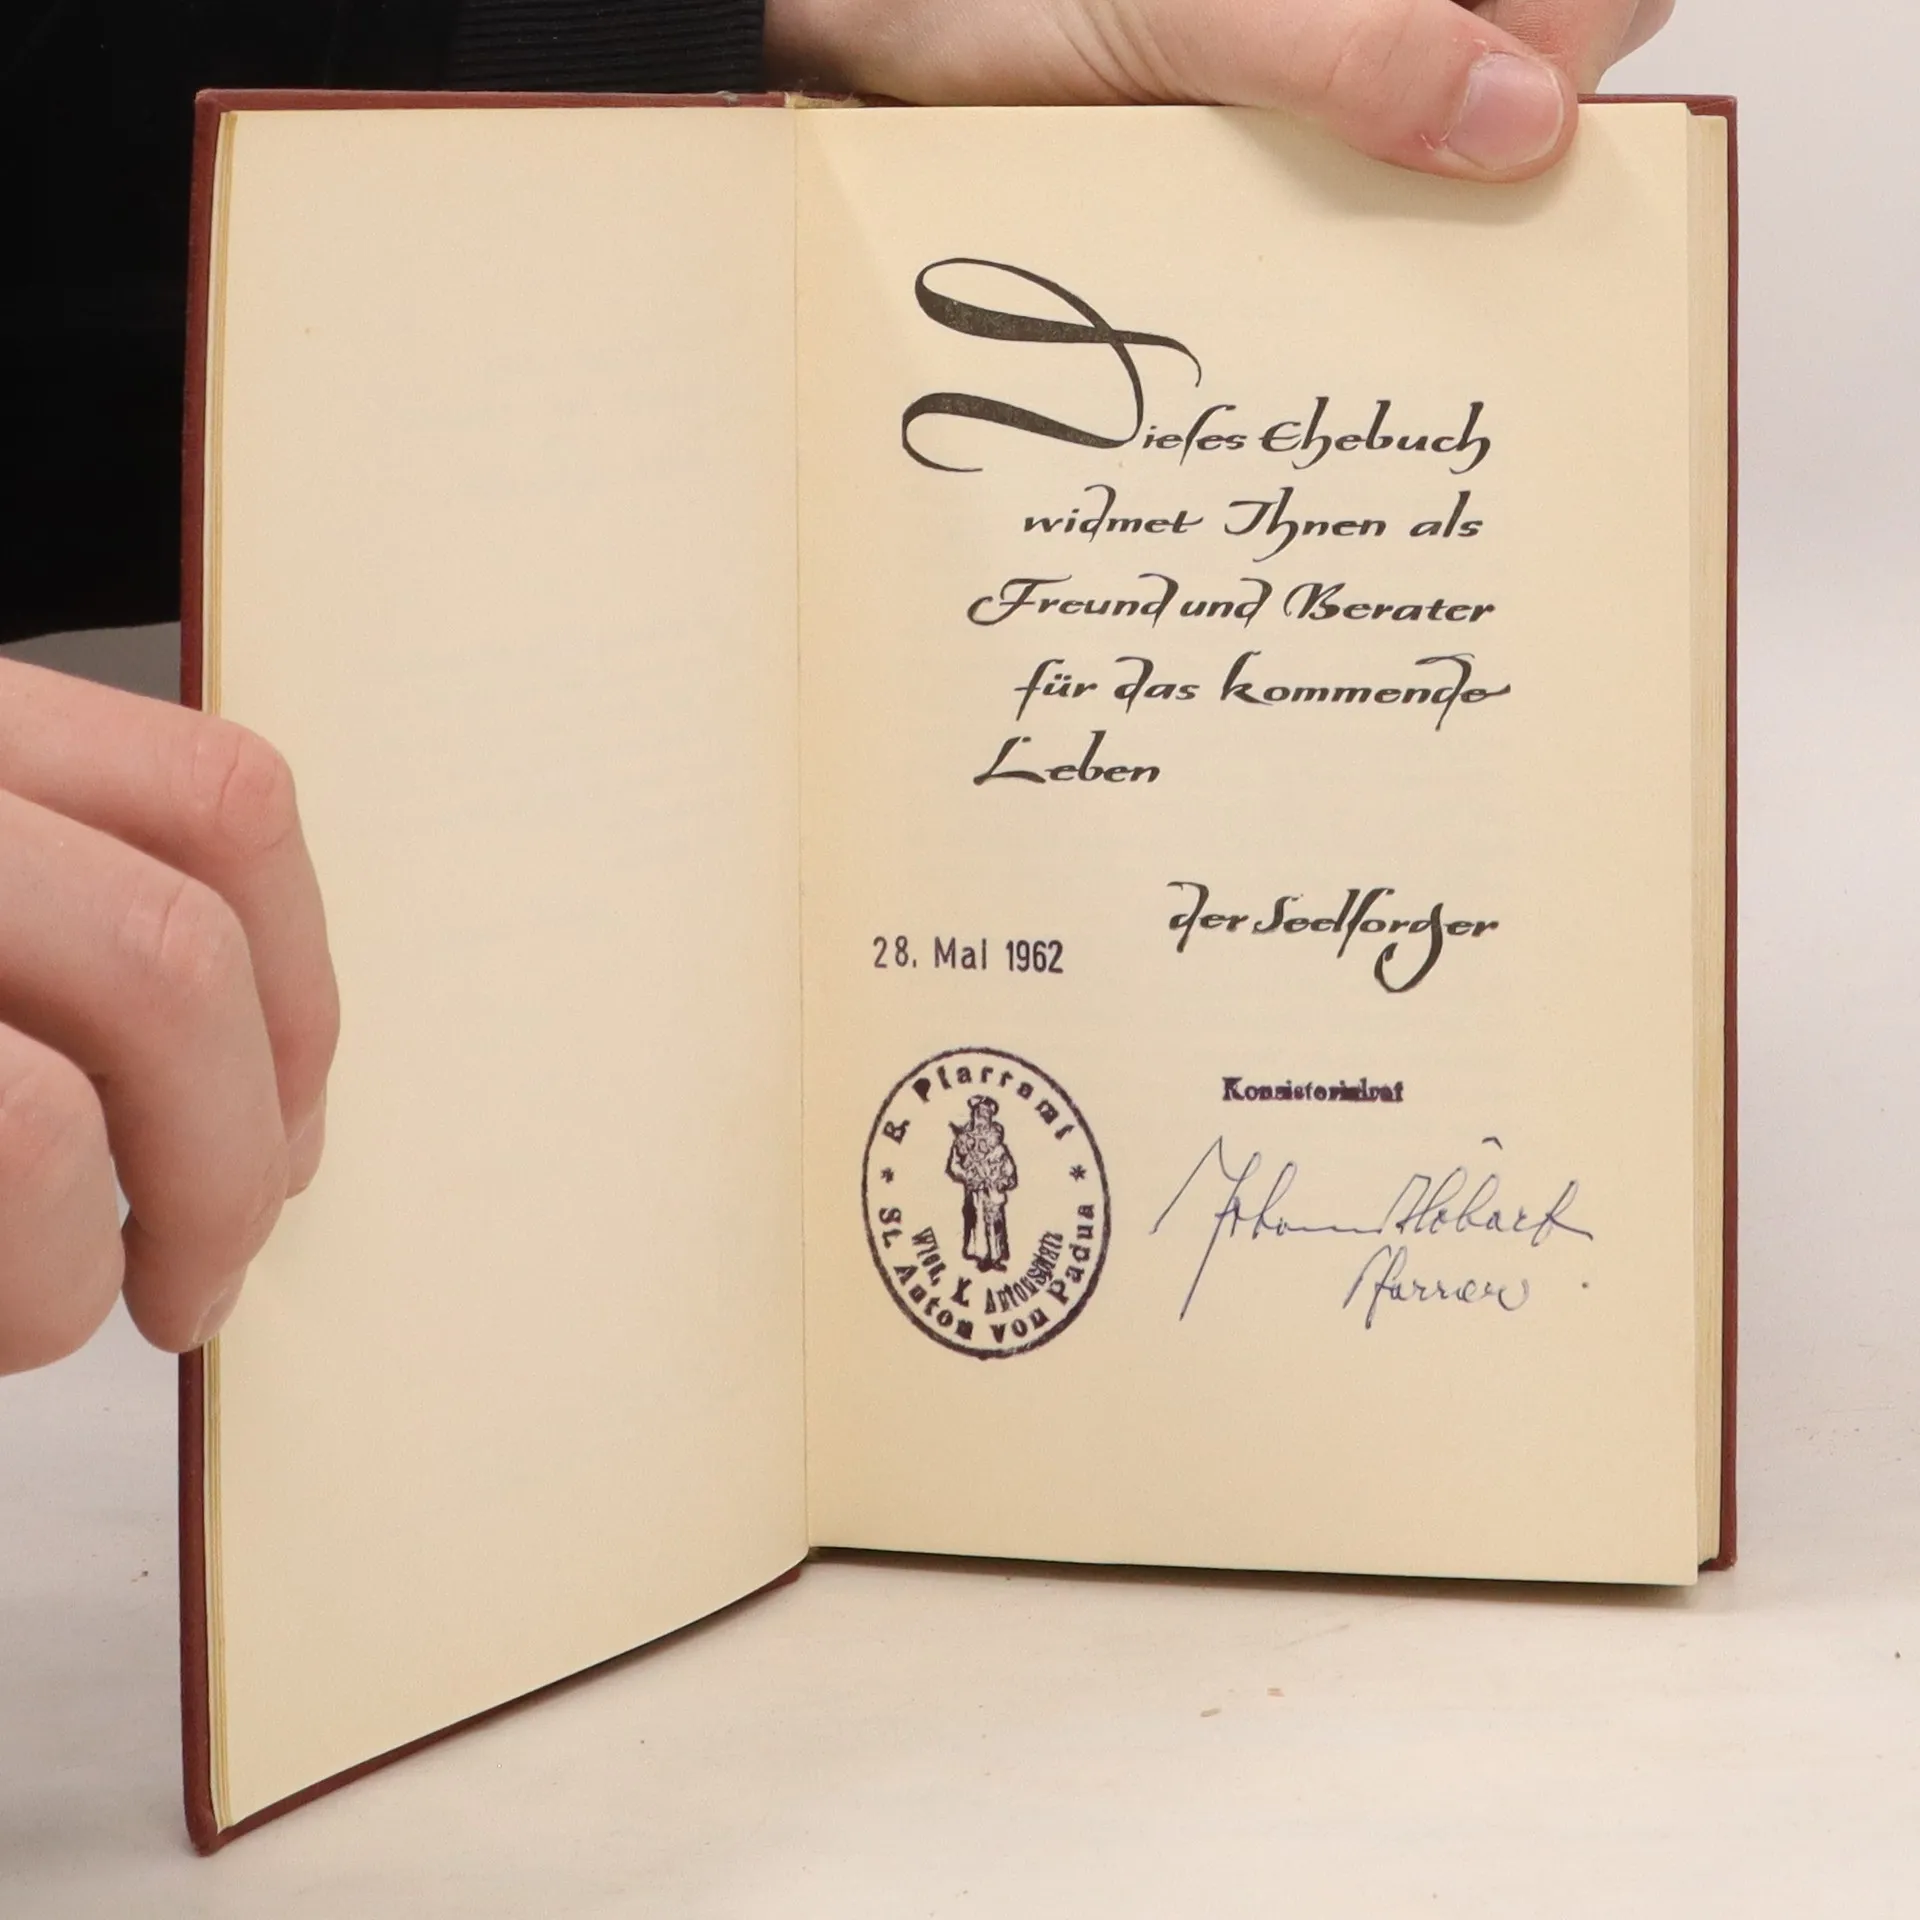 Dieses Ehebuch
widmet Ihnen als
Freund und Berater
für das kommende
Leben
der Seelsorger
28. Mai 1962
Konsistorialrat
R. Pfarramt
* St. Anton von Padua *
Wien, X. Antonsplatz
Johann
Pfarrer